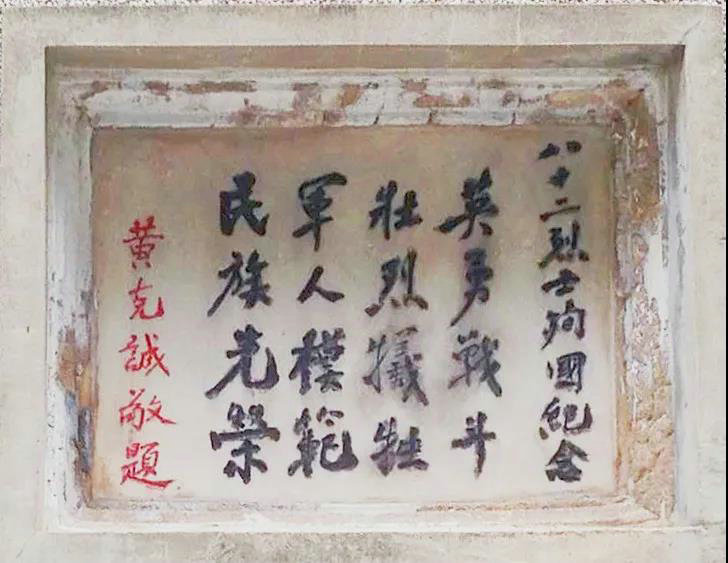 八十二烈士殉國紀念
英勇戰斗
壯烈犧牲
軍人模範
民族光榮
黃克誠敬題